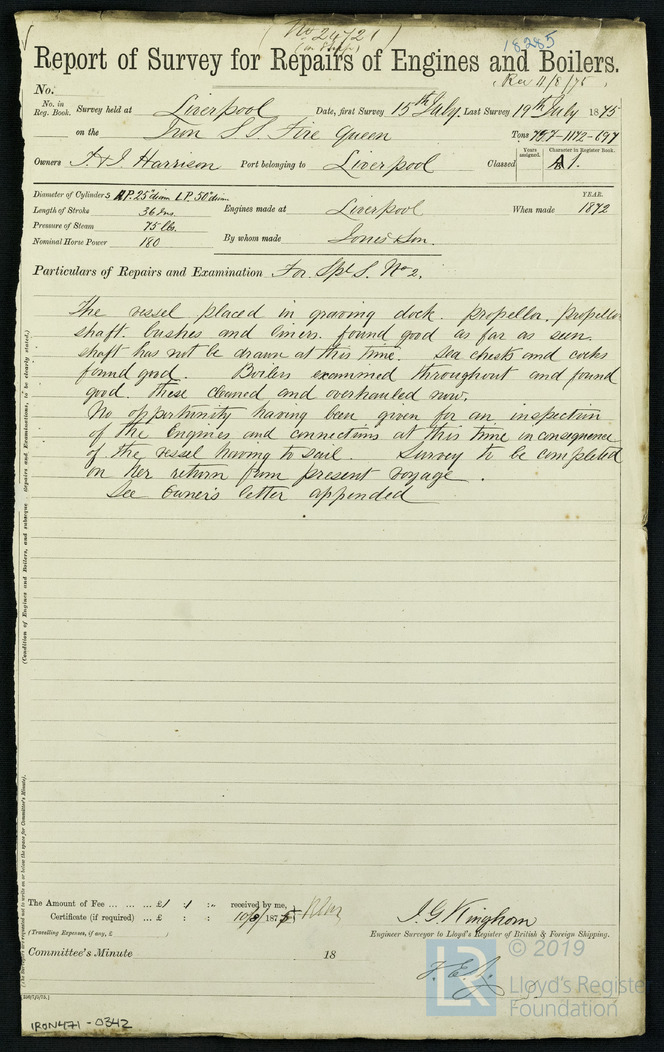 (No 24721)
(in Ship)
18285
Report of Survey for Repairs of Engines and Boilers.
Rec 11/8/75
No.
No. in Reg. Book. Survey held at Liverpool Date, first Survey 15th July. Last Survey 19th July 1875
on the Iron S S Fire Queen Tons 757-1172-697
Owners T. & J. Harrison Port belonging to Liverpool Classed Years assigned. Character in Register Book. A 1.
Diameter of Cylinders H.P. 25"diam L.P. 50"diam YEAR.
Length of Stroke 36 Ins. Engines made at Liverpool When made 1872
Pressure of Steam 75 lbs.
Nominal Horse Power 180 By whom made Jones & Son.
Particulars of Repairs and Examination For Spl S. No 2.
The vessel placed in graving dock. propeller. propeller
shaft. bushes and liners. found good as far as seen.
shaft has not be drawn at this time. Sea chests and cocks
found good. Boilers examined throughout and found
good. these cleaned and overhauled now.
No opportunity having been given for an inspection
of the Engines and connections at this time in consequence
of the vessel having to sail. Survey to be completed
on her return from present voyage.
See Owners letter appended
(Condition of Engines and Boilers, and subseque Repairs and Examinations, to be clearly stated.)
(The Surveyors are requested not to write on or below the space for Committee's Minute).
The Amount of Fee ... ... ... £1 : 1 : „ received by me,
Certificate (if required) ... £ : : 10/8/1875
(Travelling Expenses, if any, £ )
J. G. Kinghorn
Engineer Surveyor to Lloyd's Register of British & Foreign Shipping.
Committee's Minute 18
© 2019
LR Lloyd's Register
Foundation
IRON471-0342